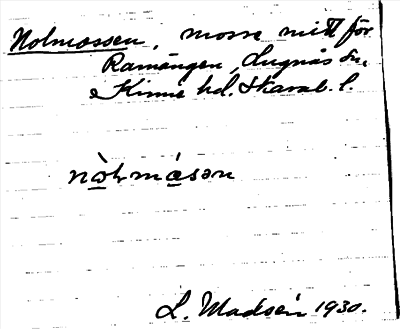 Nolmossen, mosse mitt för
Ramängen, Lugnås sn.
Kinne hd. Skarab. l.
nòlmåsən
L. Madsén 1930.